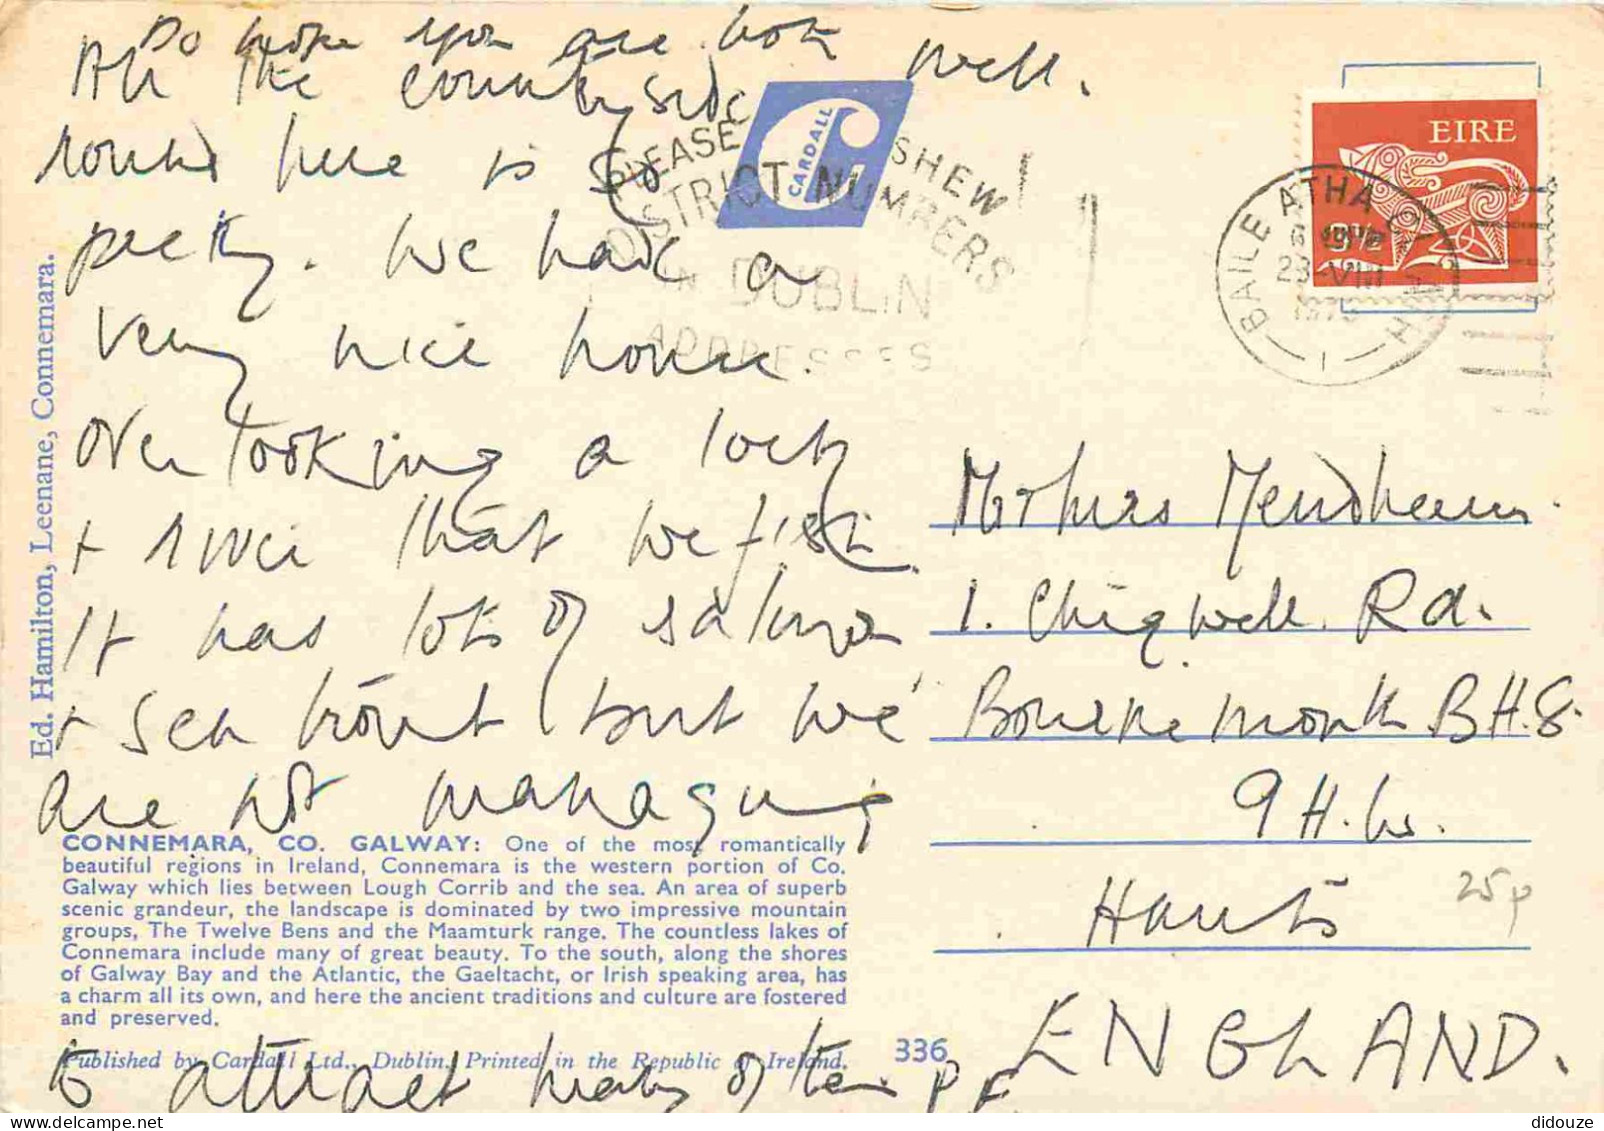 Do hope you are both well.
All the countryside
round here is so
pretty. We have a
very nice house
overlooking a loch
+ river that we fish.
It has lots of salmon
+ sea trout but we
are not managing
to attract many of them. P.
Mr + Mrs Mendham
1. Chigwell Rd.
Bournemouth BH.8.
9H.W.
Hants
ENGLAND.
25p
EIRE
BAILE ATHA CLIATH
1
PLEASE SHEW
DISTRICT NUMBERS
IN DUBLIN
ADDRESSES
CARDALL
Ed. Hamilton, Leenane, Connemara.
CONNEMARA, CO. GALWAY: One of the most romantically
beautiful regions in Ireland, Connemara is the western portion of Co.
Galway which lies between Lough Corrib and the sea. An area of superb
scenic grandeur, the landscape is dominated by two impressive mountain
groups, The Twelve Bens and the Maamturk range. The countless lakes of
Connemara include many of great beauty. To the south, along the shores
of Galway Bay and the Atlantic, the Gaeltacht, or Irish speaking area, has
a charm all its own, and here the ancient traditions and culture are fostered
and preserved.
Published by Cardall Ltd., Dublin. Printed in the Republic of Ireland.
336
didouze